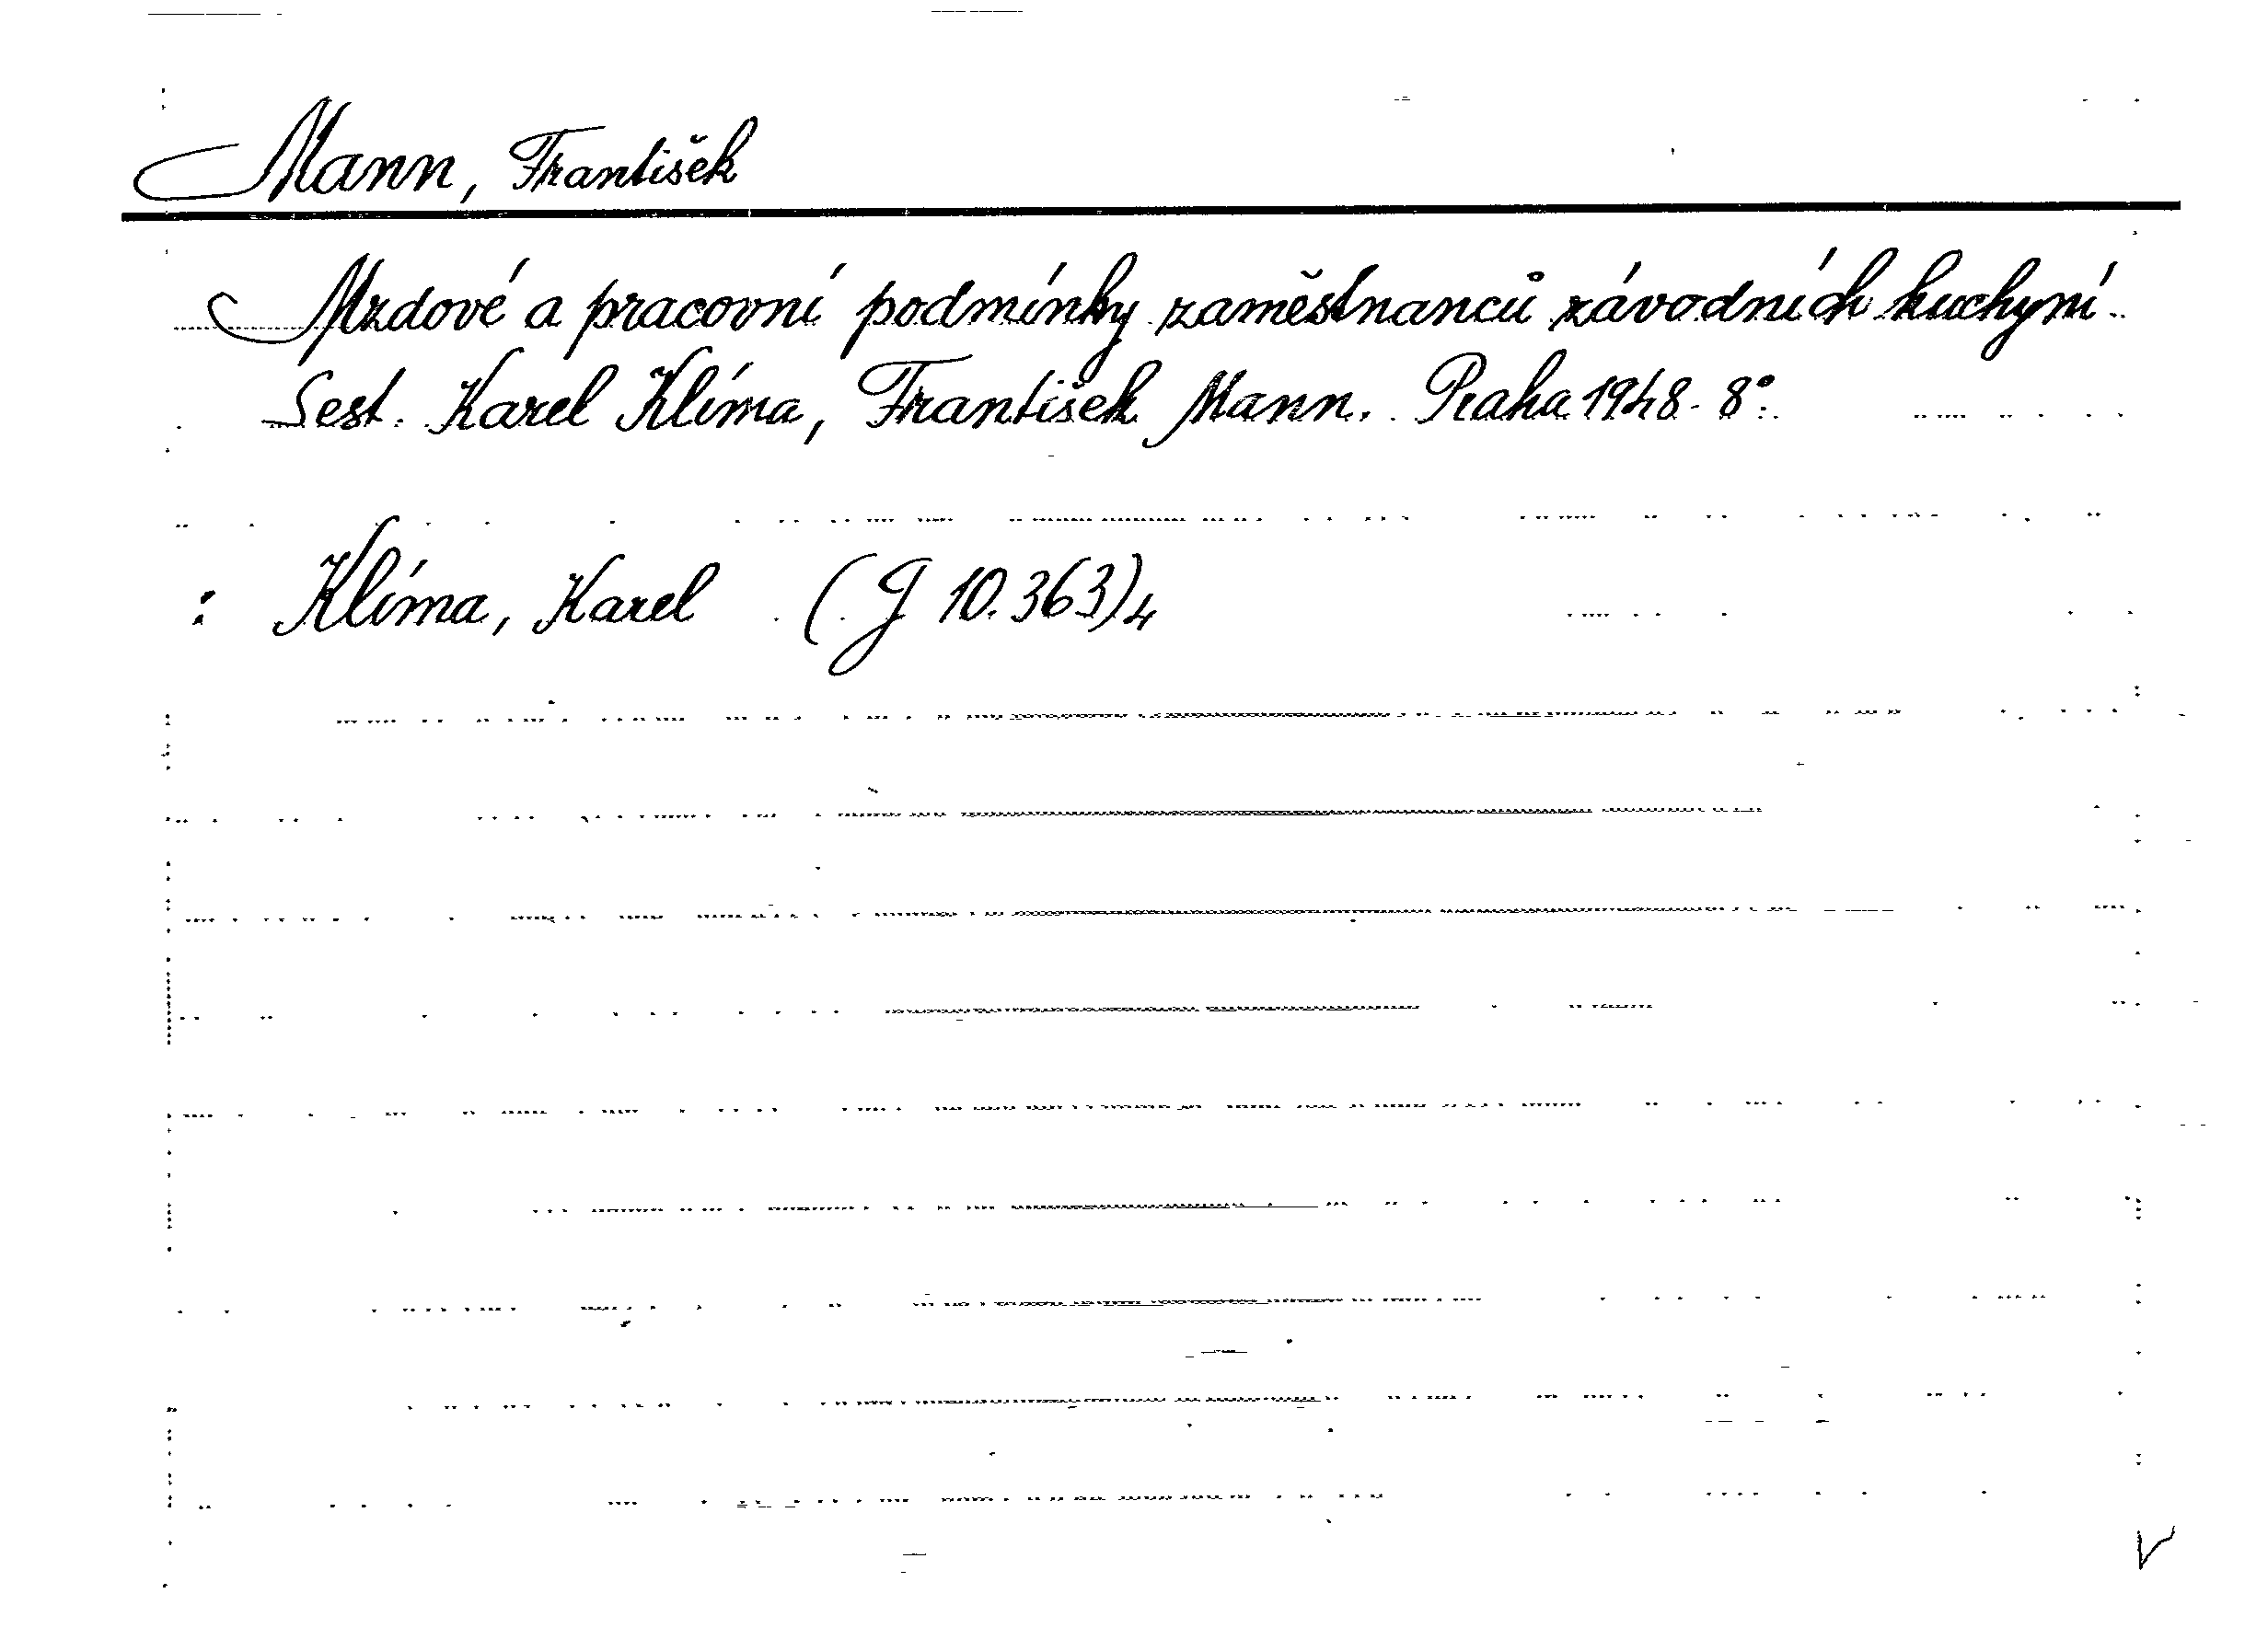 Mann, František
Mzdové a pracovní podmínky zaměstnanců závodních kuchyní.
Sest. Karel Klíma, František Mann. Praha 1948. 8°.
: Klíma, Karel (J 10.363)4
V